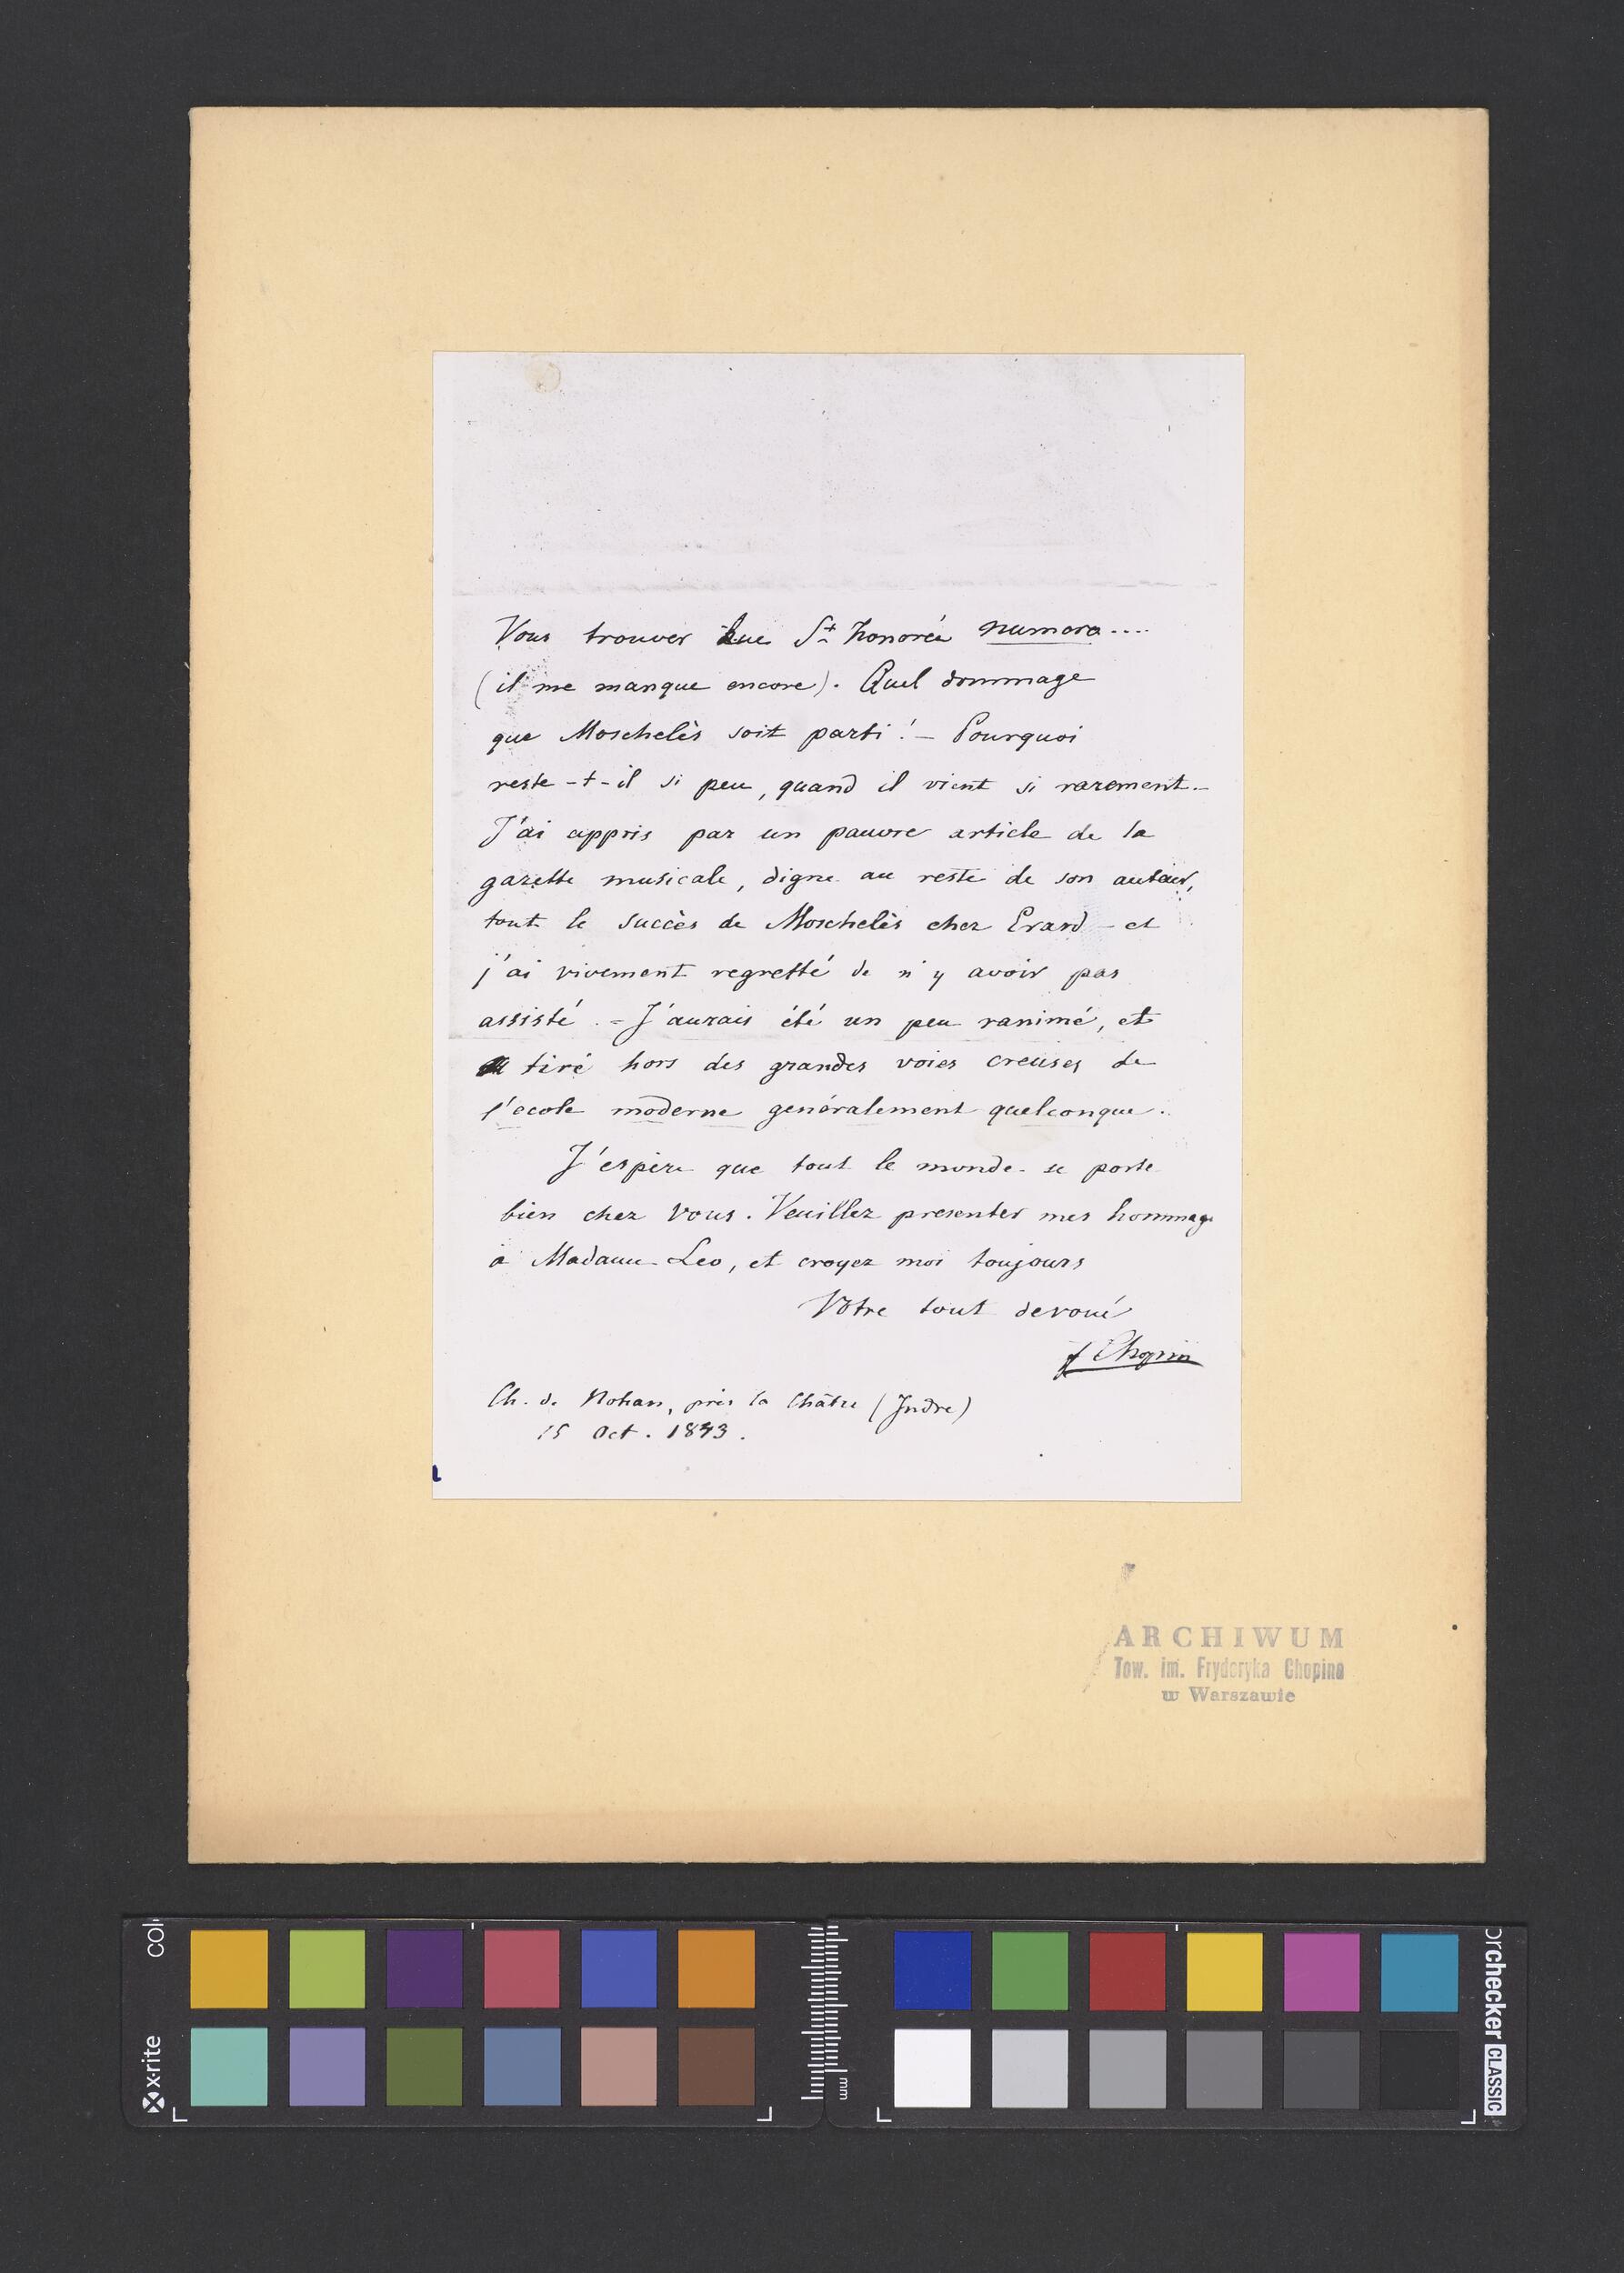 Vous trouver Rue St honorée numero....
(il me manque encore). Quel dommage
que Moschelès soit parti! – Pourquoi
reste-t-il si peu, quand il vient si rarement. –
J'ai appris par un pauvre article de la
gazette musicale, digne au reste de son auteur,
tout le succès de Moschelès chez Erard – et
j'ai vivement regretté de n'y avoir pas
assisté. = J'aurais été un peu ranimé, et
tiré hors des grandes voies creuses de
l'ecole moderne generalement quelconque.
J'espère que tout le monde se porte
bien chez vous. Veuillez presenter mes hommages
à Madame Leo, et croyez moi toujours
Votre tout devoué
f Chopin
Ch. de Nohan, près la Châtre (Indre)
15 Oct. 1843.
ARCHIWUM
Tow. im. Fryderyka Chopina
w Warszawie
x·rite
col
orchecker CLASSIC
mm